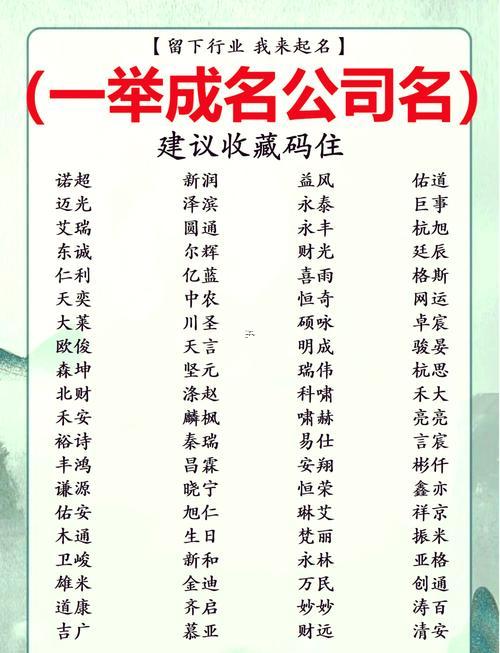 【留下行业 我来起名】
(一举成名公司名)
建议收藏码住
诺超 新润 益风 佑道
迈光 泽滨 永泰 巨事
艾瑞 圆通 永丰 杭旭
东诚 尔辉 财光 廷辰
仁利 亿蓝 喜雨 格斯
天奕 中农 恒奇 网运
大莱 川圣 硕咏 卓宸
欧俊 天言 明成 骏晏
森坤 坚元 瑞伟 杭思
北财 涤赵 科啸 禾大
禾安 麟枫 啸赫 亮亮
裕诗 秦瑞 易仕 言宸
丰鸿 昌霖 安翔 彬仟
谦源 晓宁 恒荣 鑫亦
佑安 旭仁 琳艾 祥京
木通 生日 梵丽 振米
卫峻 新和 永林 亚格
雄米 金迪 万民 创通
道康 齐启 妙妙 涛百
吉广 慕亚 财远 清安